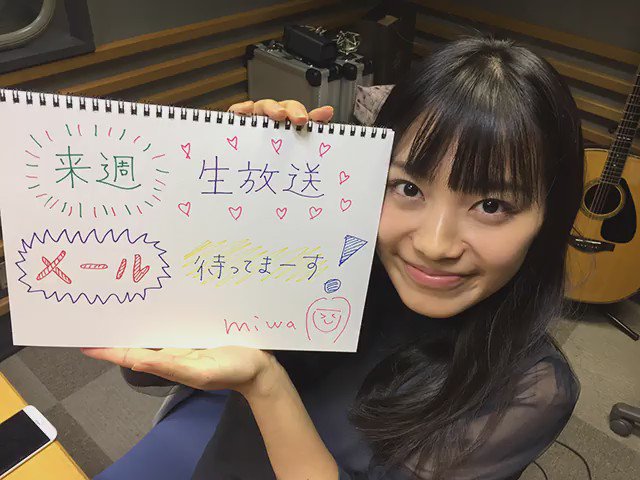 来週 生放送
メール 待ってまーす!
miwa